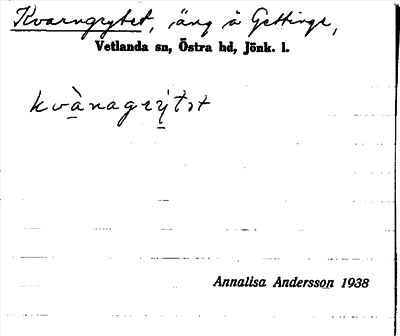 Kvarngrytet, äng å Gettinge,
Vetlanda sn, Östra hd, Jönk. l.
kvànagrýtət
Annalisa Andersson 1938